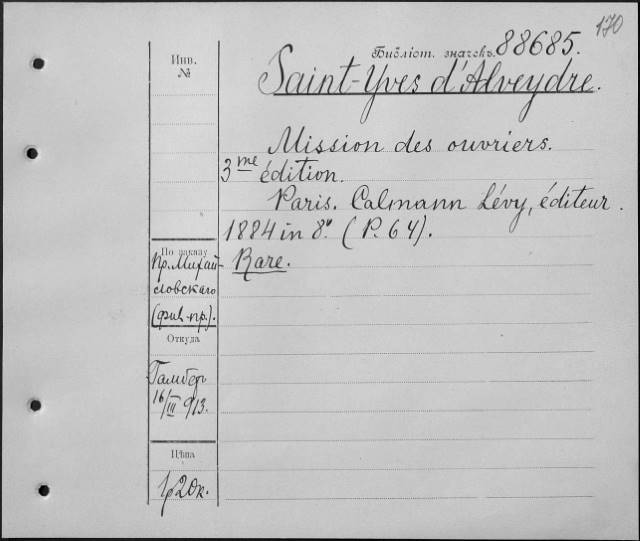 170
Библіот. значекъ 88685.
Инв.
№
Saint-Yves d'Alveydre.
Mission des ouvriers.
3me édition.
Paris. Calmann Lévy, éditeur.
1884 in 8º. (P. 64).
Rare.
По заказу
Пр. Михай-
ловскаго
Откуда
16/III 913.
Цѣна
1р 20к.